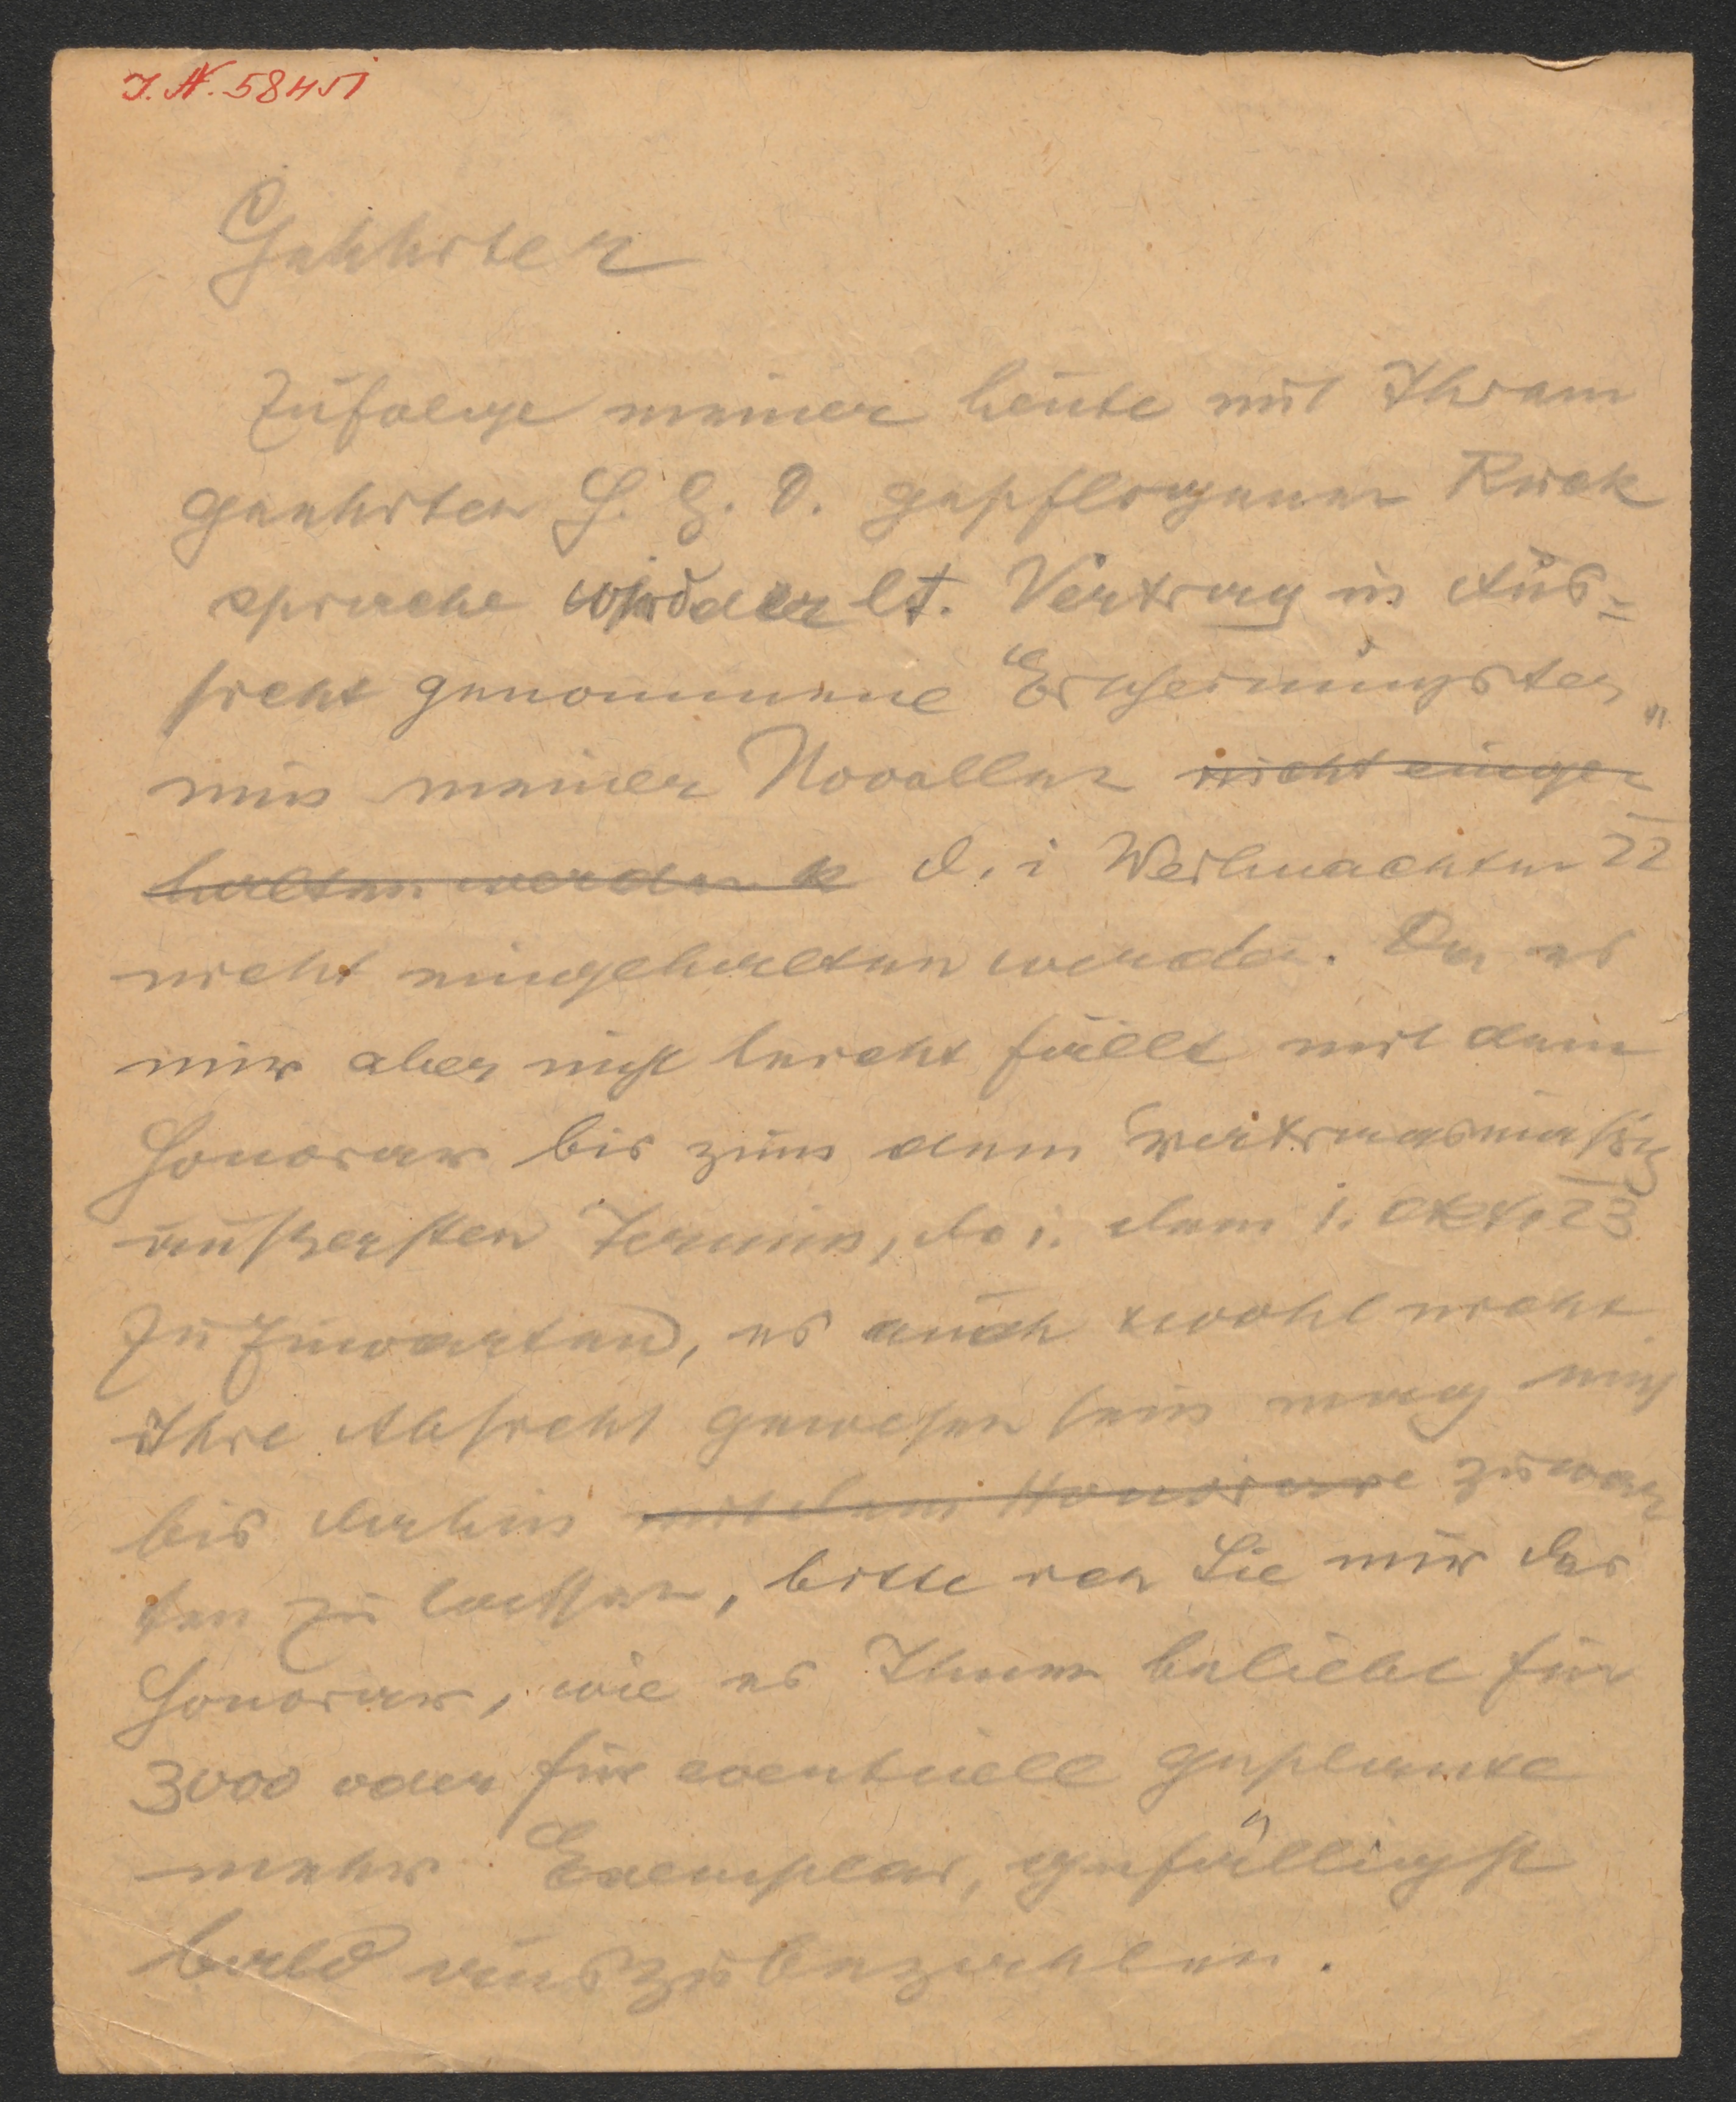 I. N. 58451
Geehrter
Zufolge meiner heute mit Ihrem
geehrten H. E. D. gepflogenen Rück
sprache wird der lt. Vertrag in Aus=
sicht genommene Erscheinungster„
min meiner Novellen nicht einge-
halten werden k d. i Weihnachten 22
nicht eingehalten werden. Da es
mir aber nicht leicht fällt mit dem
Honorar bis zum dem vertragsmäßig
äußersten Termin, d. i. dem 1. Okt. 23
zu zuwarten, es auch wohl nicht
Ihre Absicht gewesen sein mag mich
bis dahin mit dem Honorare zuwar
ten zu lassen, bitte ich Sie mir das
Honorar, wie es Ihnen beliebt für
3000 oder für eventuell geplante
mehr Exemplar, gefälligst
bald auszubezahlen.